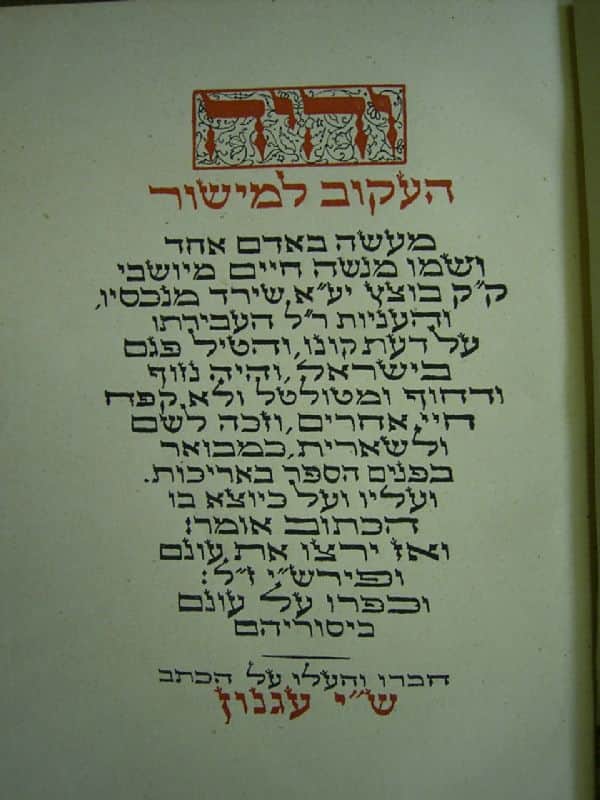 והיה
העקוב למישור
מעשה באדם אחד
ושמו מנשה חיים מיושבי
ק״ק בוצץ יע״א שירד מנכסיו,
והעניות ר״ל העבירתו
על דעת קונו, והטיל פגם
בישראל, והיה נזוף
ודחוף ומטולטל ולא קפח
חיי אחרים, וזכה לשם
ולשארית, כמבואר
בפנים הספר באריכות.
ועליו ועל כיוצא בו
הכתוב אומר:
ואז ירצו את עונם
ופירש״י ז״ל:
וכפרו על עונם
ביסוריהם
חברו והעלו על הכתב
ש״י עגנון